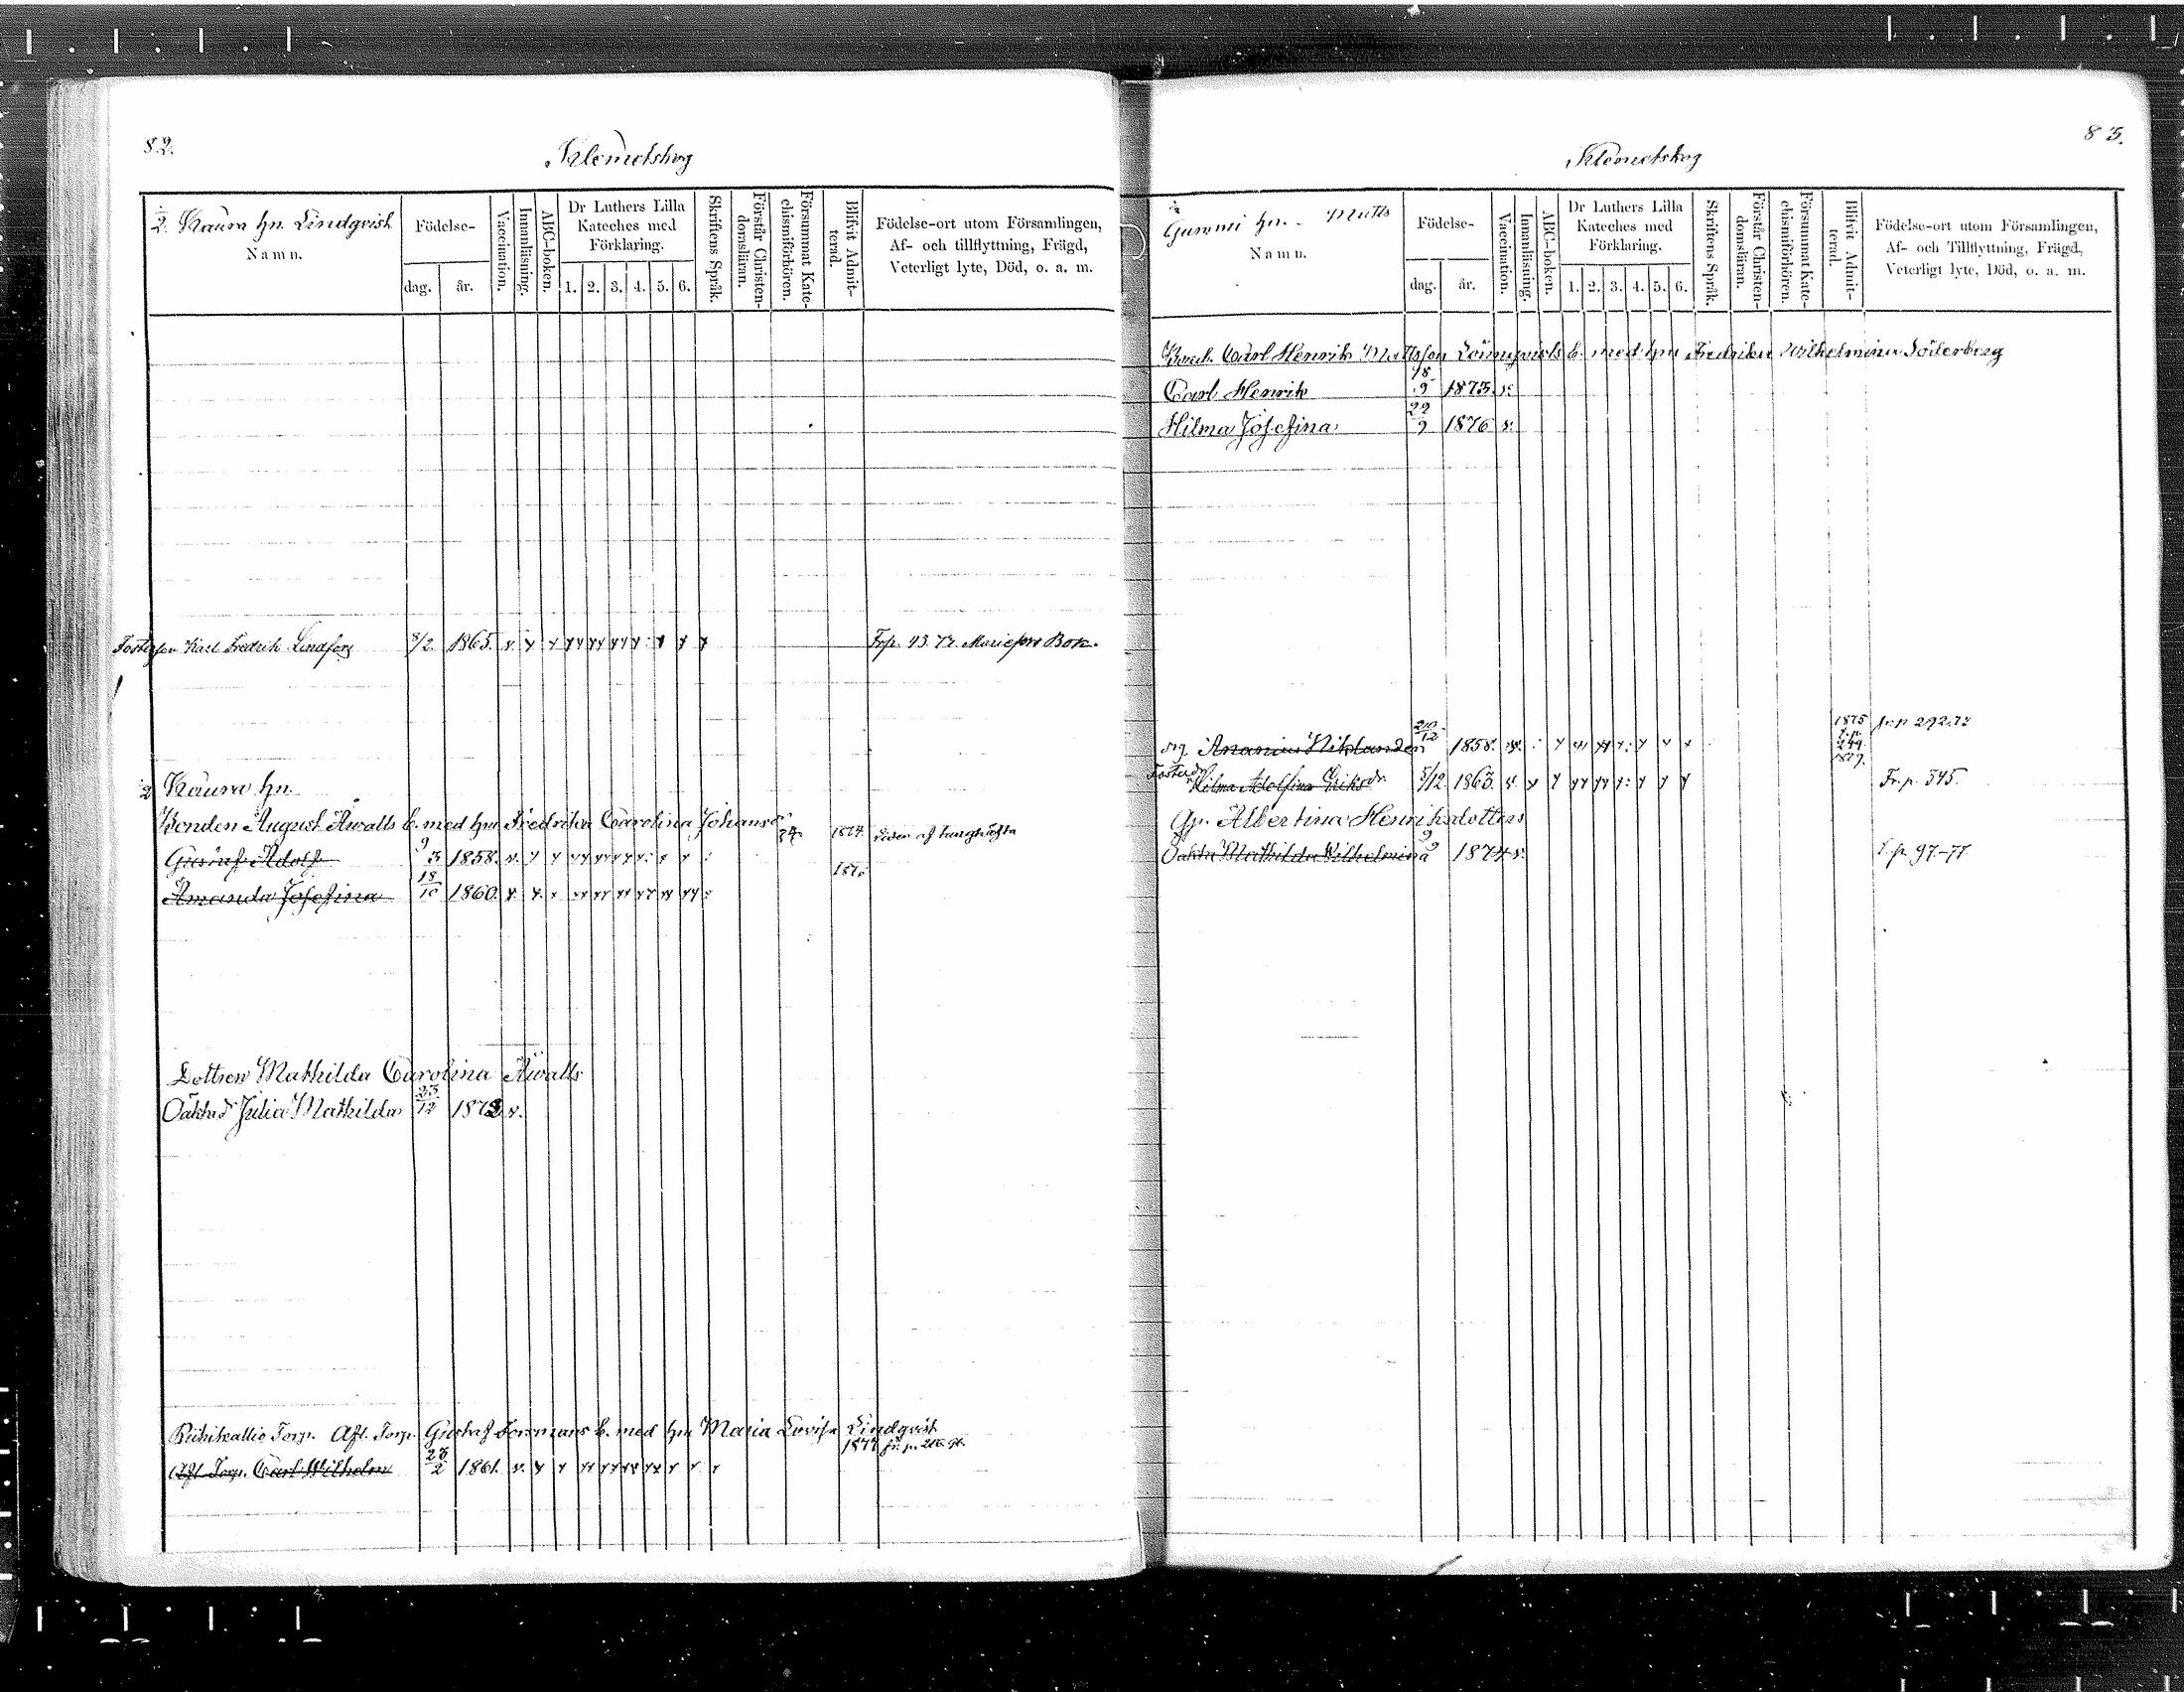 82.
Klemetskog
½. Kaura hn. Lindqvist
Namn.
Födelse-
dag.
år.
Vaccination.
Innanläsning.
ABC-boken.
Dr Luthers Lilla Kateches med Förklaring.
1. 2. 3. 4. 5. 6.
Skriftens Språk.
Förstår Christen-domsläran.
Försummat Kate-chismiförhören.
Blifvit Admit-terad.
Födelse-ort utom Församlingen, Af- och tillflyttning, Frägd, Veterligt lyte, Död, o. a. m.
Fosterson Karl Fredrik Lindfors 8/2 1865. Frp. 43. 72.
Kaura hn.
Bonden August Äwalls b. med hu Fredrika Carolina Johansdr
Gustaf Adolf 9/3 1858. 1874.
Amanda Josefina 18/10 1860.
Dottren Mathilda Carolina Äwalls
Oäkta dr Julia Mathilda 23/12 1872 v.
Torp. Afl. Torp. Gustaf Forsmans b. med hu Maria Lovisa Lindqvist
Afl. Torp. Carl Wilhelm 23/2 1861. v. 1877
83.
Klemetskog
Gummi hn. Matts
Namn.
Födelse-
dag.
år.
Vaccination.
Innanläsning.
ABC-boken.
Dr Luthers Lilla Kateches med Förklaring.
1. 2. 3. 4. 5. 6.
Skriftens Språk.
Förstår Christen-domsläran.
Försummat Kate-chismiförhören.
Blifvit Admit-terad.
Födelse-ort utom Församlingen, Af- och Tillflyttning, Frägd, Veterligt lyte, Död, o. a. m.
Carl Henrik Mattsson Lönnqvists b. med hu Fredrika Wilhelmina Söderberg
Carl Henrik 18/9 1873. v.
Hilma Josefina 22/9 1876 v.
Ananias Niklander 20/12 1858. 1875 fr. p. 292. 73
t. p. 249. 1877.
Fosterdr Hilma Adolfina Eriksdr 5/12 1863. Fr. p. 545.
Albertina Henriksdotters
Oäkta Mathilda Wilhelmina 9/9 1874 v. t. p. 97-77.